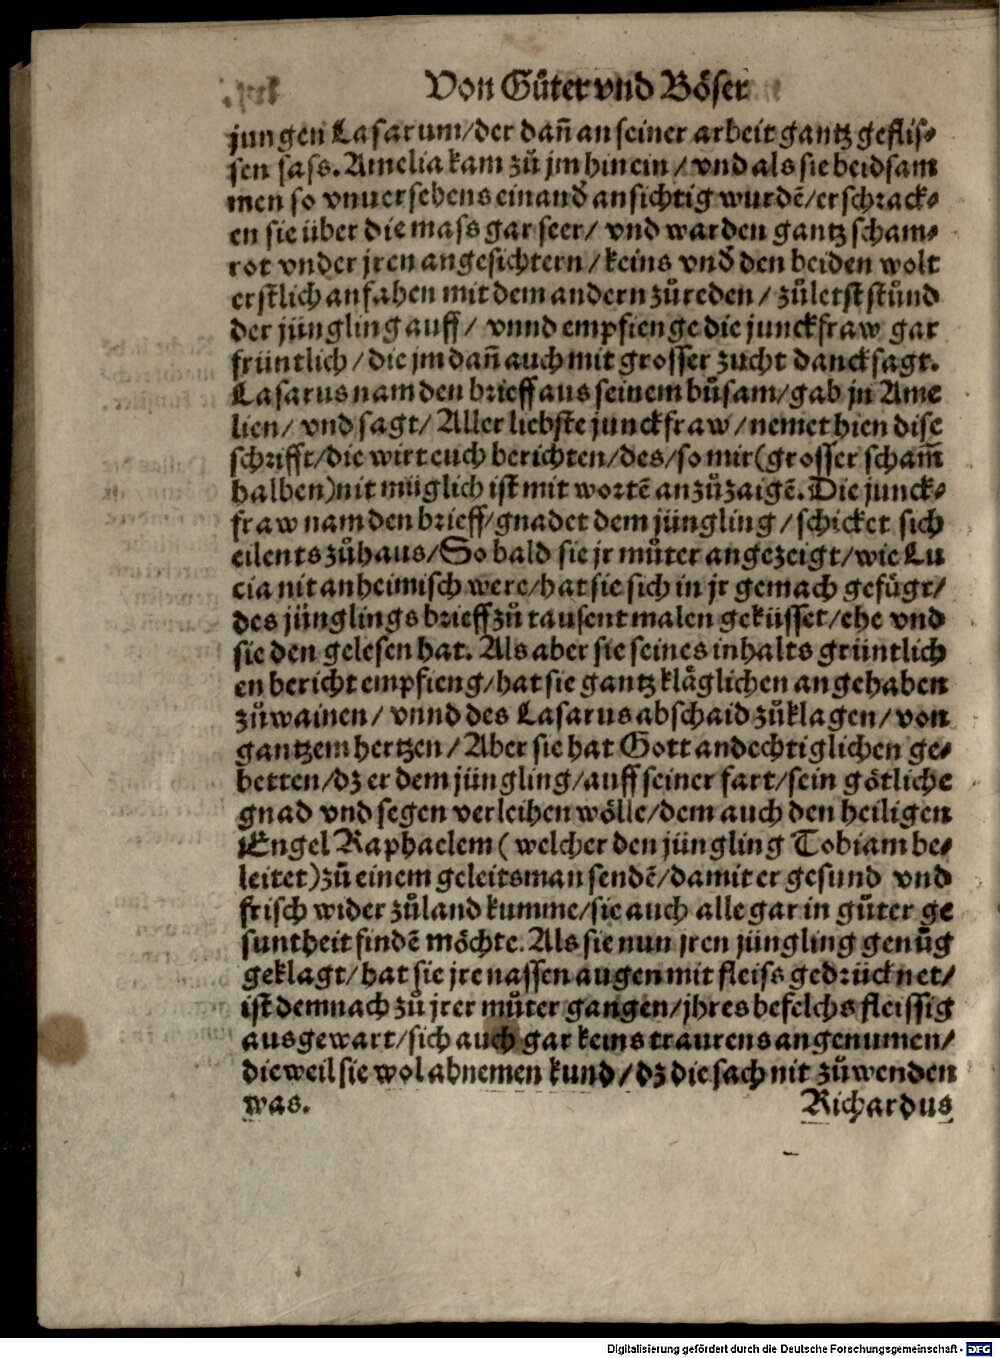 Von Guͦter vnd Boͤser
jungen Lasarum/der dañ an seiner arbeit gantz geflis⸗
sen sass. Amelia kam zuͦ jm hinein/ vnd als sie beidsam
men so vnuersehens einand' ansichtig wurdẽ/erschrack⸗
en sie über die mass gar seer/ vnd warden gantz scham⸗
rot vnder jren angesichtern/keins vnd' den beiden wolt
erstlich anfahen mit dem andern zuͦreden/ zuͦletst stuͦnd
der jüngling auff/ vnnd empfienge die junckfraw gar
früntlich/die jm dañ auch mit grosser zucht dancksagt.
Lasarus nam den brieff aus seinem buͦsam/gab jn Ame
lien/ vnd sagt/ Aller liebste junckfraw/nemet hien dise
schrifft/die wirt euch berichten/des/so mir(grosser scham̃
halben)nit müglich ist mit wortẽ anzuͦzaigẽ. Die junck⸗
fraw nam den brieff/gnadet dem jüngling/schicket sich
eilents zuͦhaus/So bald sie jr muͦter angezeigt/wie Lu
cia nit anheimisch were/hat sie sich in jr gemach gefuͤgt/
des jünglings brieff zuͦ tausent malen geküsset/ehe vnd
sie den gelesen hat. Als aber sie seines inhalts grüntlich
en bericht empfieng/hat sie gantz klaͤglichen angehaben
zuͦwainen/ vnnd des Lasarus abschaid zuͦklagen/ von
gantzem hertzen/Aber sie hat Gott andechtiglichen ge⸗
betten/dz er dem jüngling/auff seiner fart/sein goͤtliche
gnad vnd segen verleihen woͤlle/dem auch den heiligen
Engel Raphaelem( welcher den jüngling Tobiam be⸗
leitet)zuͦ einem geleitsman sendẽ/damit er gesund vnd
frisch wider zuͦ land kumme/sie auch alle gar in guͦter ge
suntheit findẽ moͤchte. Als sie nun jren jüngling genuͦg
geklagt/hat sie jre nassen augen mit fleiss gedrücknet/
ist demnach zuͦ jrer muͦter gangen/jhres befelchs fleissig
ausgewart/sich auch gar keins traurens angenumen/
dieweil sie wol abnemen kund/dz die sach nit zuͦwenden
was. Richardus
Digitalisierung gefördert durch die Deutsche Forschungsgemeinschaft - DFG